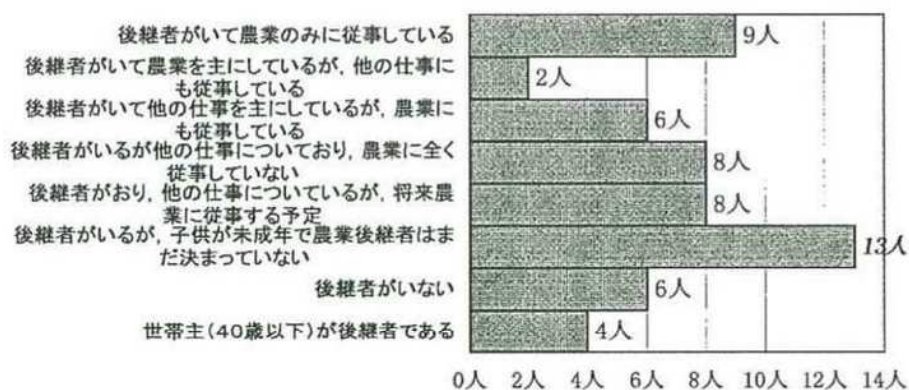 後継者がいて農業のみに従事している
9人
後継者がいて農業を主にしているが，他の仕事に
も従事している
2人
後継者がいて他の仕事を主にしているが，農業に
も従事している
6人
後継者がいるが他の仕事についており，農業に全く
従事していない
8人
後継者がおり，他の仕事についているが，将来農
業に従事する予定
8人
後継者がいるが，子供が未成年で農業後継者はま
だ決まっていない
13人
後継者がいない
6人
世帯主(40歳以下)が後継者である
4人
0人 2人 4人 6人 8人 10人 12人 14人